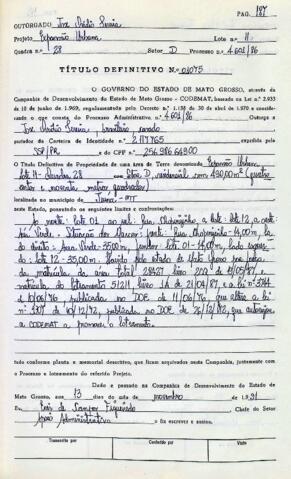 PÁG. 187
OUTORGADO José Onésio
Projeto Expansão Urbana Lote n.º 11
Quadra n.º 28 Setor D Processo n.º 4601/86
TÍTULO DEFINITIVO N.º 01075
O GOVERNO DO ESTADO DE MATO GROSSO, através da
Companhia de Desenvolvimento do Estado de Mato Grosso - CODEMAT, baseado na Lei n.º 2.933
de 10 de junho de 1969, regulamentada pelo Decreto n.º 1.138 de 30 de abril de 1970 e considerando
o que consta do Processo Administrativo n.º 4.601/86 Outorga a
José brasileiro, casado
portador da Carteira de Identidade n.º 2.117.765 expedida pelo
SSP/PR e do CPF n.º 256.986.649.00
O Título Definitivo de Propriedade de uma área de Terra denominada Expansão Urbana
Lote 11 - Quadra 28 Setor D, residencial com 490,00m² (quatro
centos e noventa metros quadrados)
localizado no município de Juína - MT
neste Estado, possuindo os seguintes limites e confrontações:
Ao norte: Lote 01, ao sul: Rua a leste: Lote 12, a oeste:
Rua Verde - Situação dos Marcos: frente: Rua - 14,00m, la
do direito: Rua Verde - 35,00m, fundos: Lote 01 - 14,00m, lado esquer
do: Lote 12 - 35,00m. Havido pelo Estado de Mato Grosso por força
da matrícula da área total 28427 livro de 19/05/87, e
matrícula do loteamento 51211 livro 1A de 21/04/87 e a lei n.º 3744
de 10/06/76, publicada no DOE de 11/06/76, que altera a lei
n.º 1307 de 10/12/92, publicada no DOE de 26/12/92, que autoriza
a CODEMAT a promover o loteamento.
tudo conforme planta e memorial descritivo, que ficam arquivados nesta Companhia, juntamente com
o Processo e loteamento do referido Projeto.
Dado e passado na Companhia de Desenvolvimento do Estado de
Mato Grosso, aos 13 dias do mês de novembro de 1.991
Eu, de Campos Figueiredo Chefe do Setor
Apoio Administrativo o fiz escrever e assino.
Transcrito por Conferido por Visto